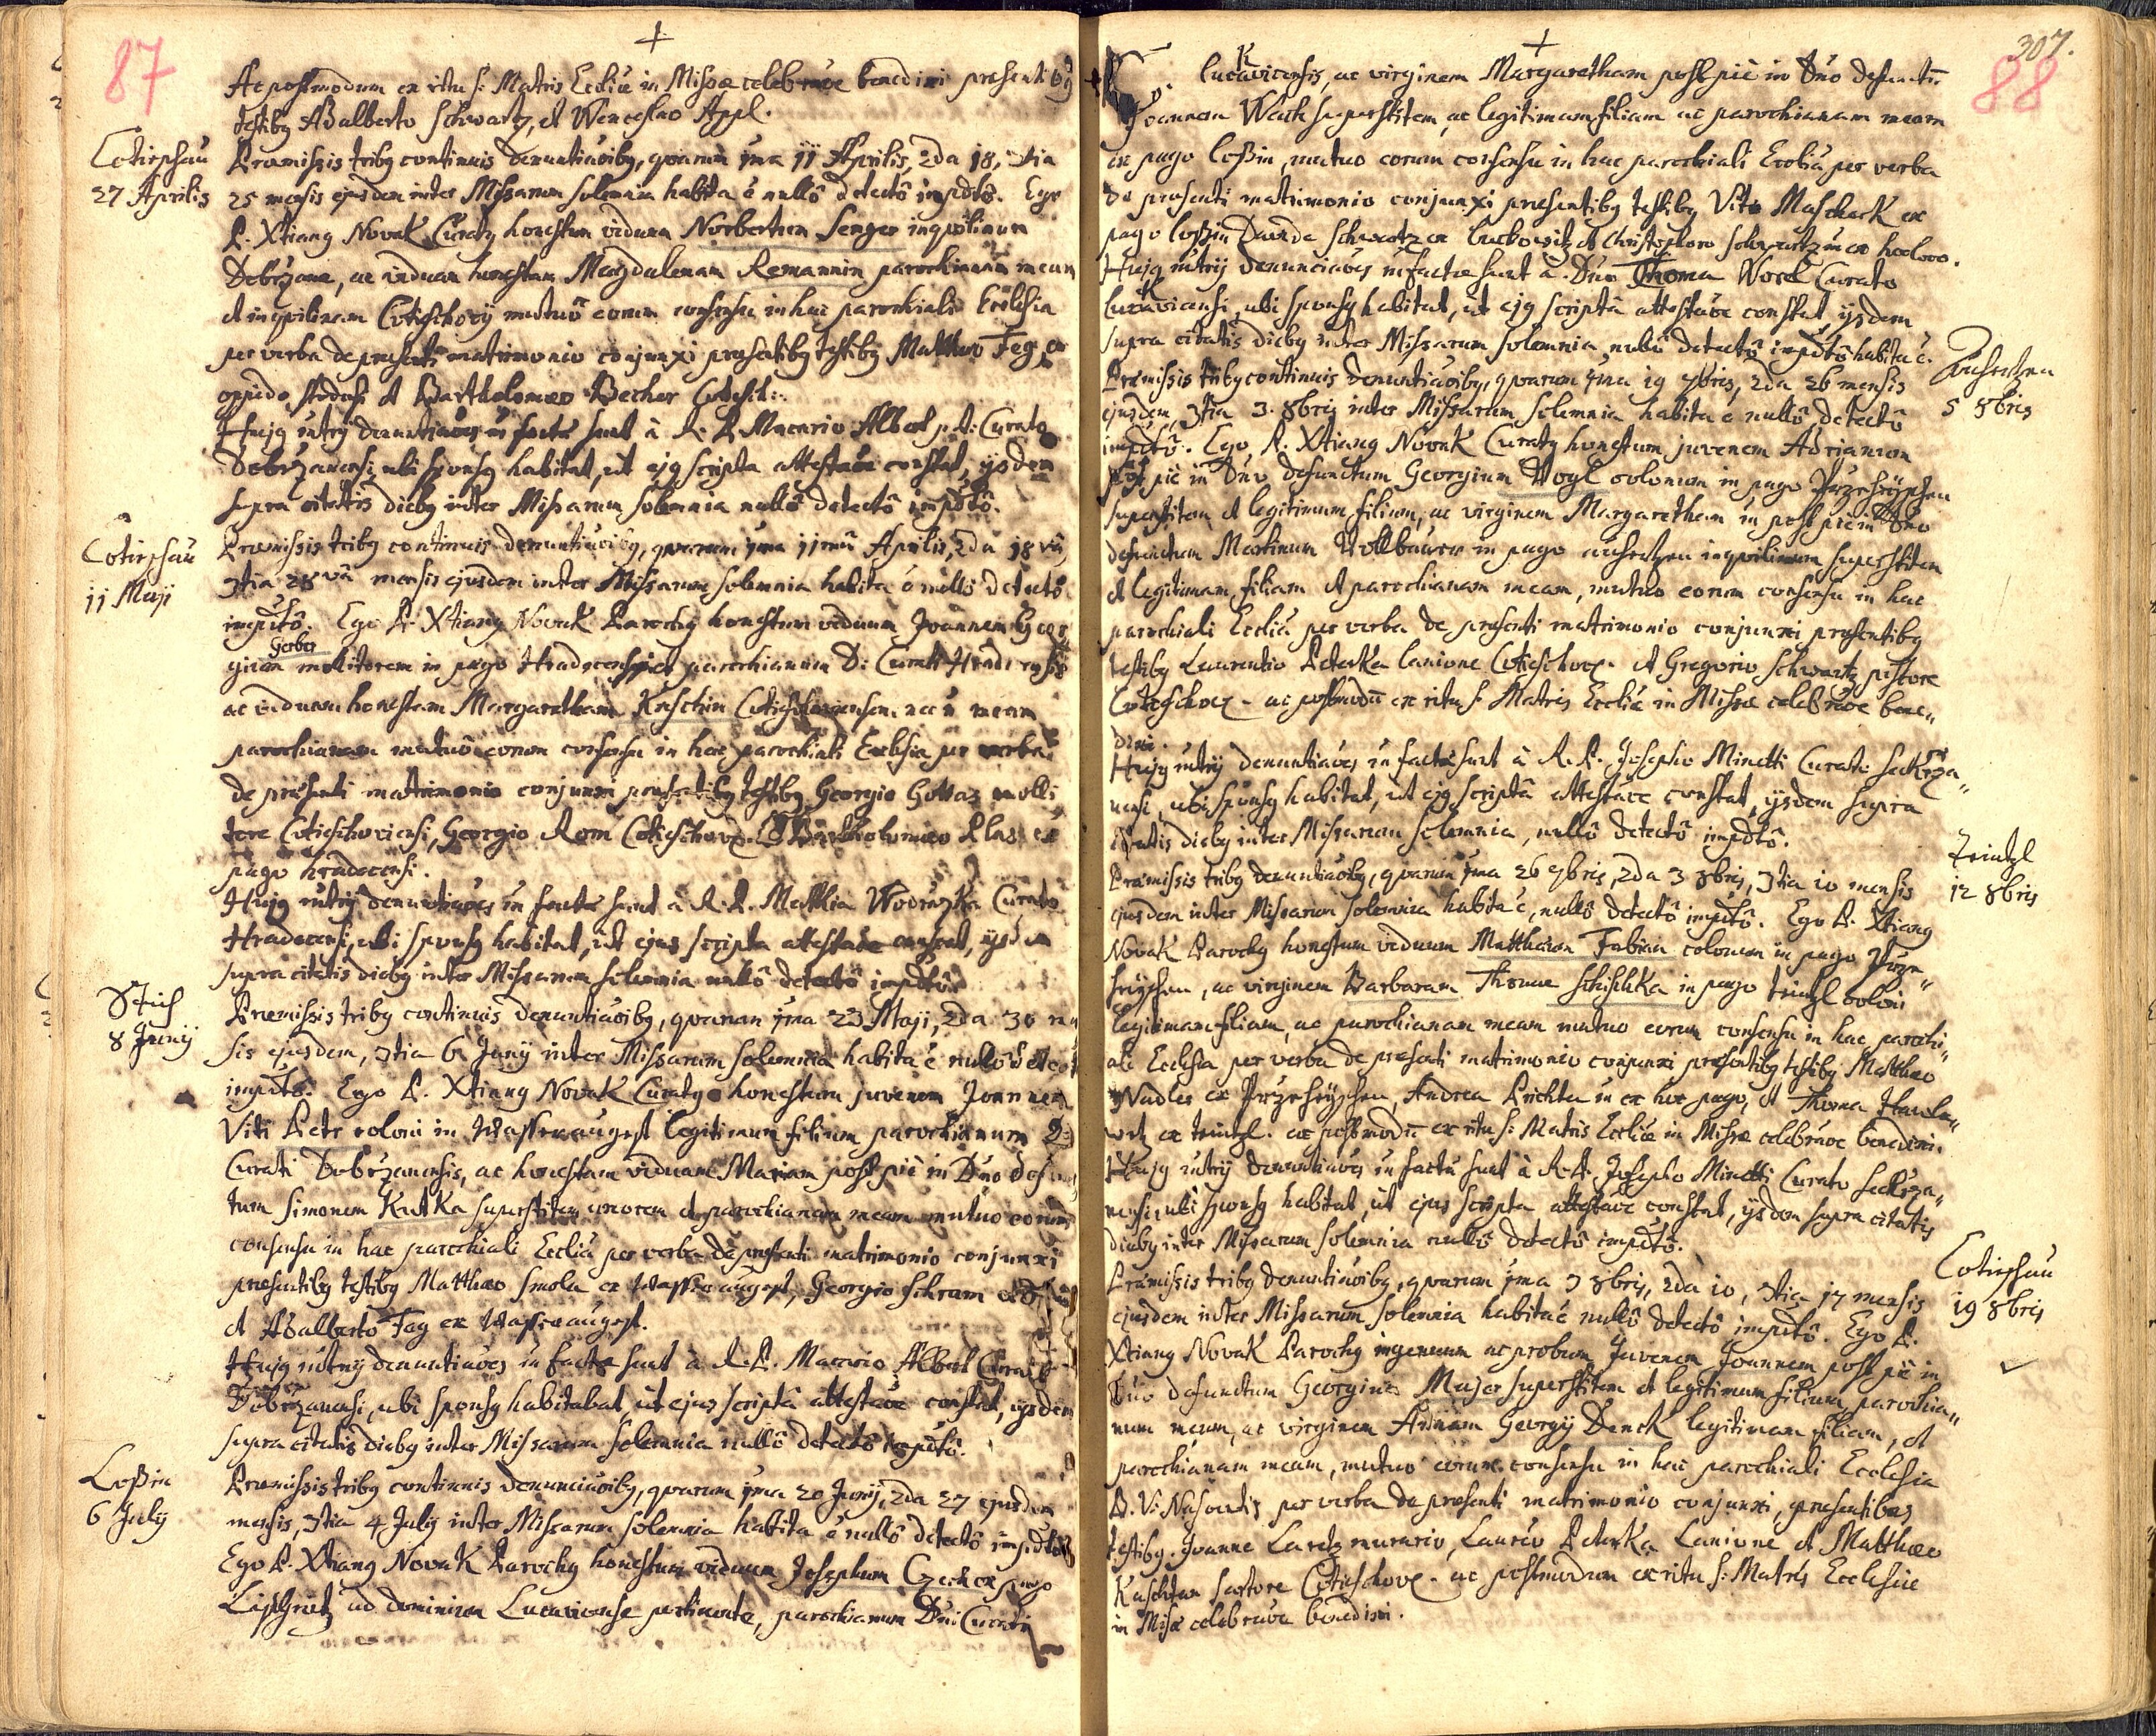 87
+
Ac postmodum ex ritu S: Matris Ecclîae in Missae celebrãoe benedixi præsentibꝰ
testibꝰ Adalberto Schwartz, et Wenceslao Appl.
Cotieschau
27 Aprilis
Præmissis tribꝰ continuis denuntiaõibꝰ, quarum 1ma 11 Aprilis, 2da 18, 3tia
25 mensis ejusdem inter Missarum solemnia habita ê nullô detectô impdtô. Ego
P. Xtianꝰ Novak Curatꝰ honestum viduum Norbertum Senger inquilinum
Dobrzano, ac viduam honestam Magdalenam Remannin parochianam meam
et inquilinam Cotieschovij mutuô eorum consensu in hac parochiali Ecclesia
per verba de præsenti matrimonio conjunxi præsentibꝰ testibꝰ Mattheo Feg ex
oppido Stodensi et Bartholomæo Becher Cotiesch:
Hujꝰ intuitu denuntiaões factæ sunt à R. P. Macario Albert p. t. Curato
Dobrzanensi ubi sponsꝰ habitat, ut ejꝰ scripta attestaõe constat, ijsdem
supra citatis diebꝰ inter Missarum solemnia nullô detectô impdtô.
Cotieschau
11 Maji
Præmissis tribꝰ continuis denuntiaõibꝰ, quarum 1ma 11mâ Aprilis, 2da 18vâ,
3tia 25vâ mensis ejusdem inter Missarum solemnia habita ê nullô detectô
impdtô. Ego P. Xtianꝰ Novak Parochꝰ honestum viduum Joannem
Gerber
molitorem in pago Hradecensi parochianum D: Curati Hradecensis
ac viduam honestam Margaretham Kaschin Cotieschoviensem meam
parochianam mutuô eorum consensu in hac parochiali Ecclesia per verba
de præsenti matrimonio conjunxi præsentibꝰ testibꝰ Georgio Gottas moli
tore Cotieschoviensi, Georgio Rom Cotieschov. Et Bartholomæo Plas ex
pago hradecensi.
Hujꝰ intuitu denuntiaões factæ sunt à R. P. Mathia Wodiczka Curato
Hradecensi, ubi sponsꝰ habitat, ut ejus scripta attestaõe constat, ijsdem
supra citatis diebꝰ inter Missarum solemnia nullô detectô impdtô.
8 Junij
Præmissis tribꝰ continuis denuntiaõibꝰ, quarum 1ma 23 Maji, 2da 30 men
sis ejusdem, 3tia 6 Junij inter Missarum solemnia habita ê nullô detectô
impdtô. Ego P. Xtianꝰ Novak Curatꝰ honestum juvenem Joannem
Viti Peter coloni in Wasseraugest legitimum filium parochianum D:
Curati Dobrzanensis, ac honestam viduam Mariam post piè in Dno defunc
tum Simonem Kutka superstitem uxorem et parochianam meam mutuo eorum
consensu in hac parochiali Ecclia per verba de præsenti matrimonio conjunxi
præsentibꝰ testibꝰ Mattheo Smola ex Wasseraugest, Georgio Schram
et Adalberto Feg ex Wasseraugest.
Hujꝰ intuitu denuntiaões factæ sunt à R. P. Macario Albert Curato
Dobrzanensi, ubi sponsꝰ habitabat, ut ejus scriptâ attestaõe constat, ijsdem
supra citatis diebꝰ inter Missarum solemnia nullô detectô impdtô.
Loßin
6 Julij
Præmissis tribꝰ continuis denunciaõibꝰ, quarum 1ma 20 Junij, 2da 27 ejusdem
mensis, 3tia 4 Julij inter Missarum solemnia habita ê nullô detectô impdtô
Ego P. Xtianꝰ Novak Parochꝰ honestum viduum Josephum Czech ex pago
ad dominium Lucavicense pertinente, parochianum Dni Curati
307.
88
+
Lukavicensis, ac virginem Margaretham post piè in Dno defunctū
Joannem Wach superstitem, ac legitimam filiam ac parochianam meam
ex pago Loßin, mutuo eorum consensu in hac parochiali Ecclia per verba
de præsenti matrimonio conjunxi præsentibꝰ testibꝰ Vito Mascheck ex
pago Loßin Davide Schwartz ex Luckowitz et Christophoro Schwartz in ex hoc loco.
Hujꝰ intuitu denunciaões factæ sunt à Dno Thoma Worel Curato
Lukavicensi, ubi sponsꝰ habitat, ut ejꝰ scriptâ attestaõe constat ijsdem
supra citatis diebꝰ inter Missarum solemnia, nullô detectô impdtô habita ê.
Auhertzen
5 8bris
Præmissis tribꝰ continuis denuntiaõibꝰ, quarum 1ma 19 7bris, 2da 26 mensis
ejusdem, 3tia 3. 8bris inter Missarum solemnia habita ê nullô detectô
impdtô. Ego P. Xtianꝰ Novak Curatꝰ honestum juvenem Adrianum
post piè in Dno defunctum Georgium Vogl colonum in pago Przehrischen
superstitem et legitimum filium, ac virginem Margaretham post piè in Dno
defunctum Martinum Hollbauer in pago auhertzen inquilinum superstitem
et legitimam filiam et parochianam meam, mutuo eorum consensu in hac
parochiali Ecclia per verba de præsenti matrimonio conjunxi præsentibꝰ
testibꝰ Laurentio Peterka lanione Cotieschov. et Gregorio Schwartz pistore
Cotieschov. ac postmodū ex ritu S: Matris Eccliæ in Missæ celebraõe bene„
dixi.
Hujꝰ intuitu denuntiaões factæ sunt à R. P. Josepho Minetti Curato Sekerza„
nensi, ubi sponsꝰ habitat, ut ejꝰ scriptâ attestaõe constat, ijsdem supra
citatis diebꝰ inter Missarum solemnia, nullô detectô impdtô.
Teintzl
12 8bris
Præmissis tribꝰ denuntiaõibꝰ, quarum 1ma 26 7bris, 2da 3 8bris, 3tia 10 mensis
ejusdem inter Missarum solemnia habita ê, nullô detectô impdtô. Ego P. Xtianꝰ
Novak Parochꝰ honestum viduum Matthæum Fabian colonum in pago Przе„
hrischen, ac virginem Barbaram Thomae Schischka in pago teintzl coloni
legitimam filiam, ac parochianam meam mutuo eorum consensu in hac parochi„
ali Ecclesia per verba de præsenti matrimonio conjunxi præsentibꝰ testibꝰ Matthæo
Nadler ex Przehrischen, Andrea Richter in ex hoc pago, et Thoma
ex teintzl. ac postmodū ex ritu S: Matris Eccliæ in Missæ celebraõe benedixi.
Hujꝰ intuitu denuntiaões factæ sunt à R. P. Josepho Minetti Curato Sekerza„
nensi, ubi sponsꝰ habitat, ut ejus scripta attestaõe constat, ijsdem supra citatis
diebꝰ inter Missarum solemnia nullô detectô impdtô.
Cotieschau
19 8bris
Præmissis tribꝰ denuntiaõibꝰ, quarum 1ma 3 8bris, 2da 10, 3tia 17 mensis
ejusdem inter Missarum solemnia habita ê nullô detectô impdtô. Ego P.
Xtianꝰ Novak Parochꝰ ingenuum ac probum Juvenem Joannem post piè in
Dno defunctum Georgium Majer superstitem et legitimum filium, parochia„
num meum, ac virginem Annam Georgij Denck legitimam filiam, et
parochianam meam, mutuo eorum consensu in hac parochiali Ecclesia
B. V: Nascentis per verba de præsenti matrimonio conjunxi, præsentibus
testibꝰ. Joanne Laretz murario, Laurēo Peterka Lanione et Matthæo
Kaschtan sartore Cotieschov. ac postmodum ex ritu S: Matris Ecclesiæ
in Missæ celebraõe benedixi.